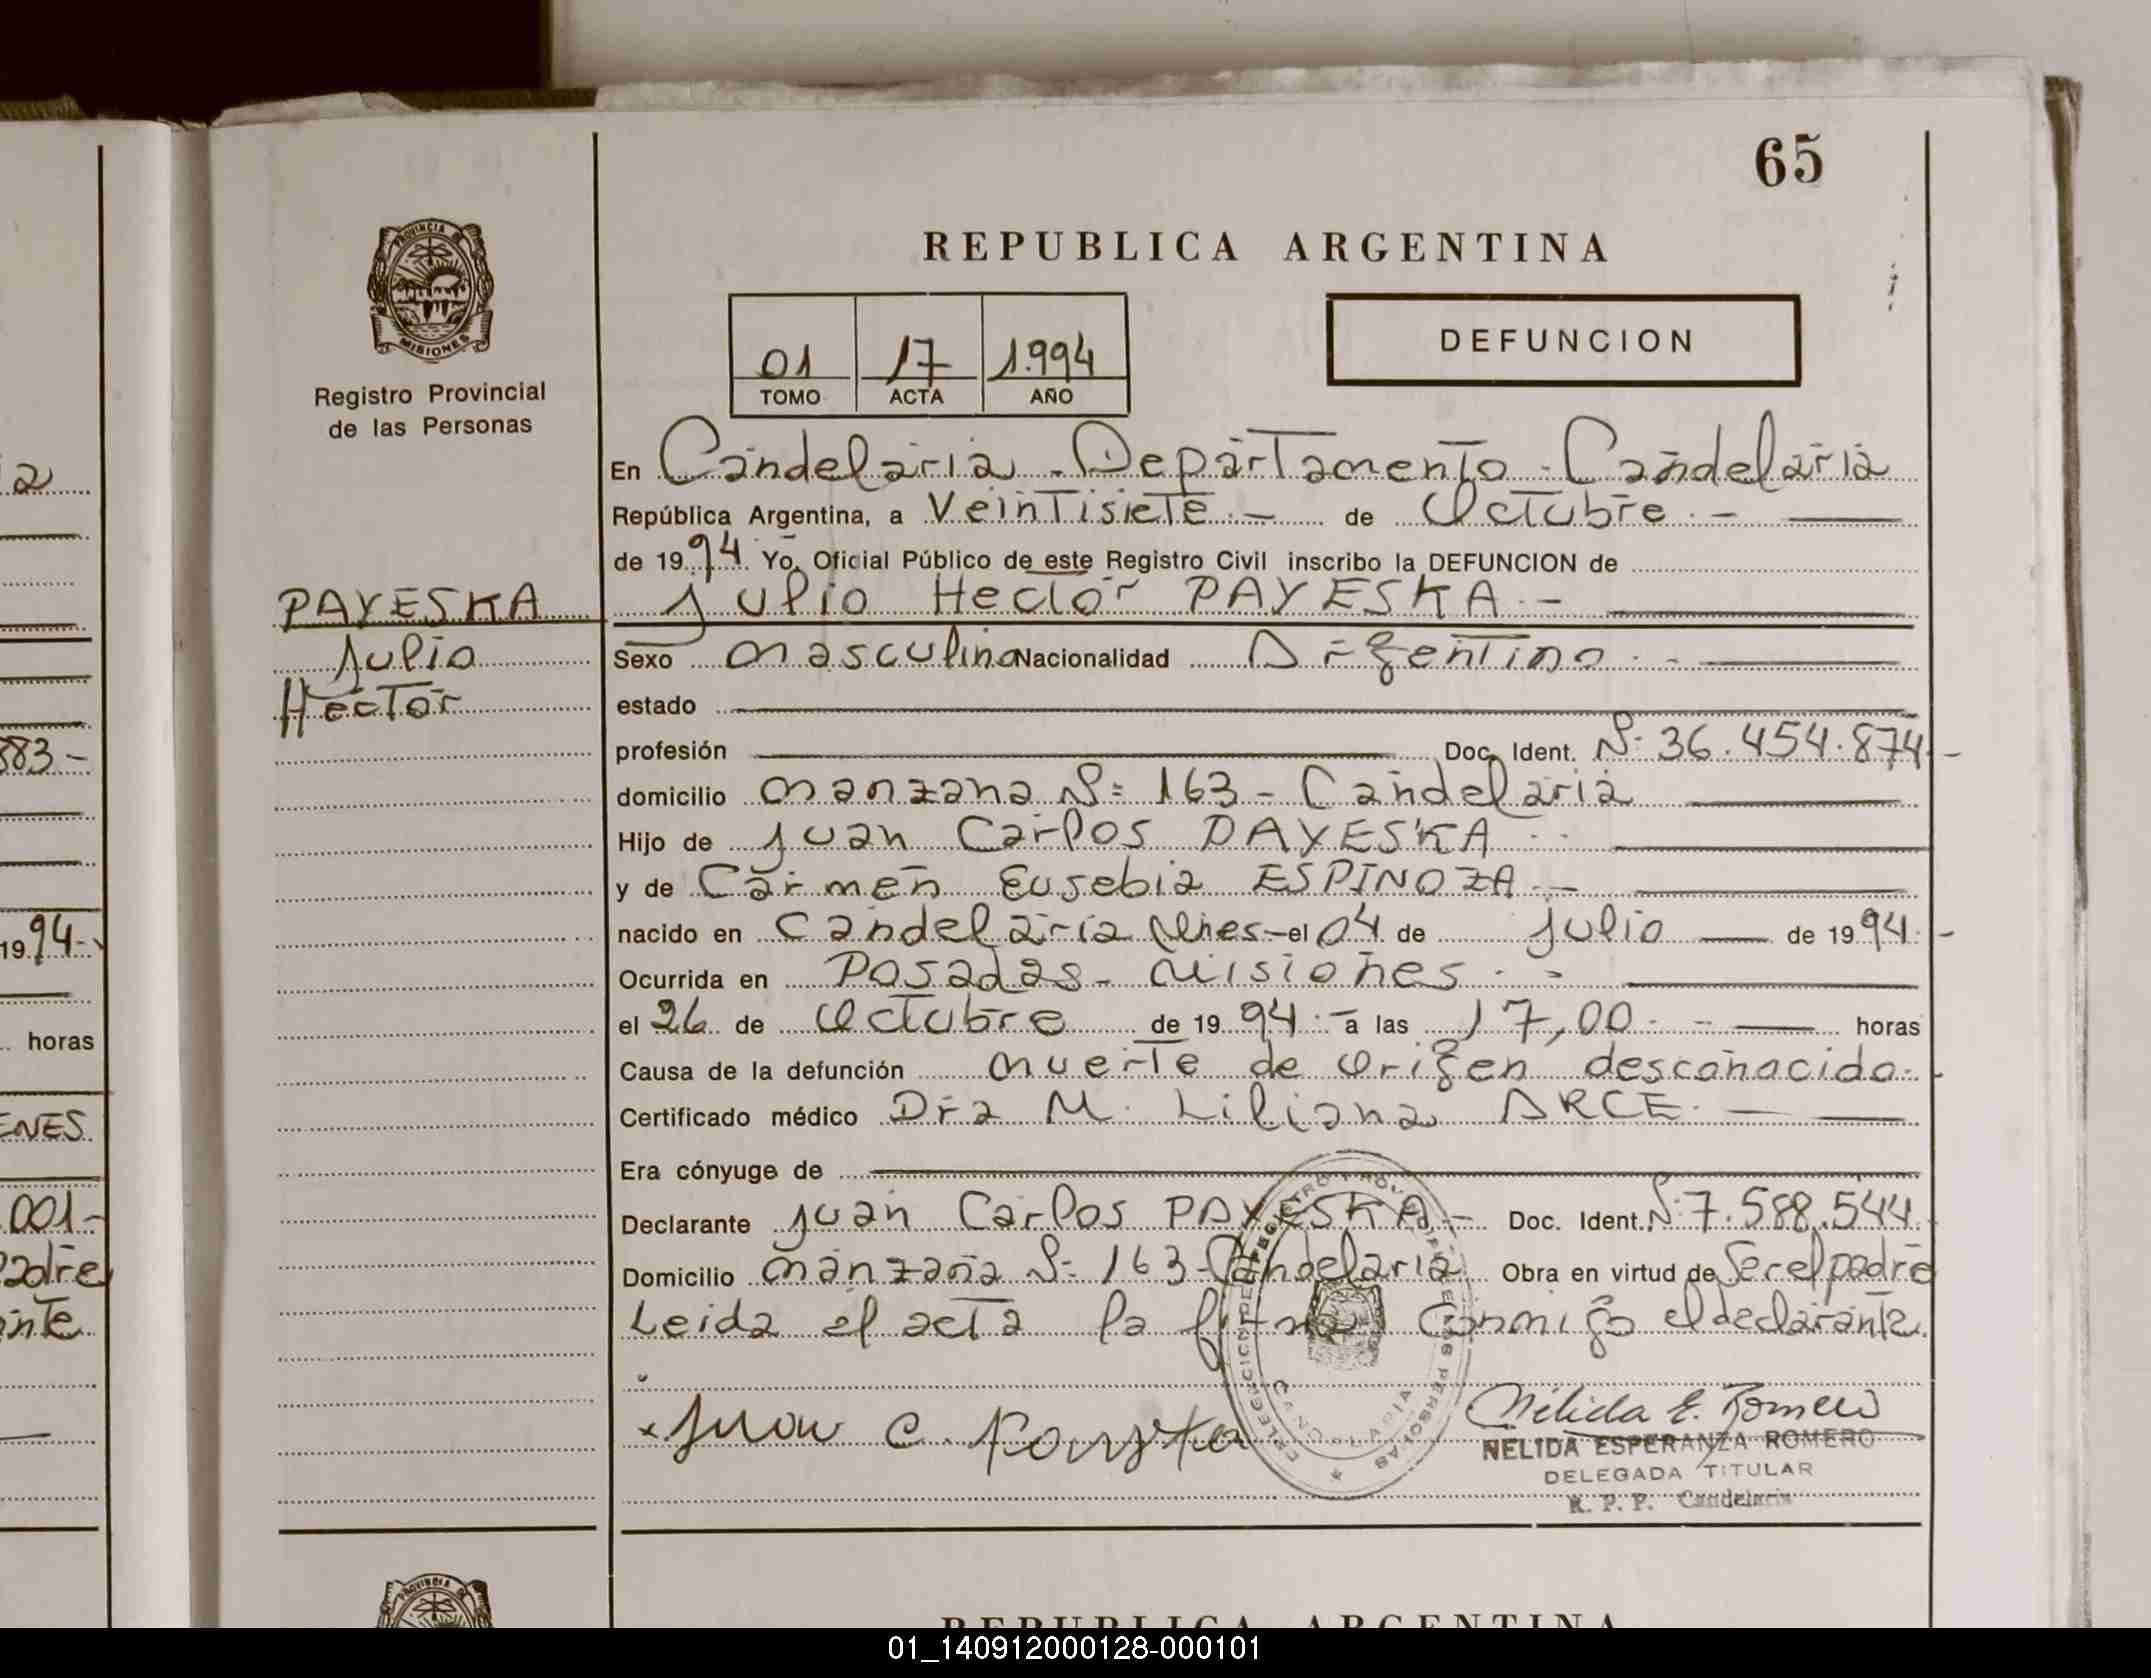 65
PROVINCIA DE
MISIONES
Registro Provincial
de las Personas
REPUBLICA ARGENTINA
01 17 1.994
TOMO ACTA AÑO
DEFUNCION
En Candelaria - Departamento - Candelaria
República Argentina, a Veintisiete - de Octubre -
de 1994 Yo, Oficial Público de este Registro Civil inscribo la DEFUNCION de
Julio Hector PAYESKA -
PAYESKA
Julio
Hector
Sexo masculino Nacionalidad Argentino
estado
profesión Doc. Ident. Nº 36.454.874 -
domicilio manzana Nº 163 - Candelaria
Hijo de Juan Carlos PAYESKA
y de Carmen Eusebia ESPINOZA -
nacido en Candelaria Mnes - el 04 de Julio de 1994 -
Ocurrida en Posadas - Misiones -
el 26 de Octubre de 1994 a las 17,00 horas
Causa de la defunción muerte de origen desconocido
Certificado médico Dra M. Liliana ARCE
Era cónyuge de
Declarante Juan Carlos PAYESKA - Doc. Ident. Nº 7.588.544
Domicilio manzana Nº 163 - Candelaria Obra en virtud de Ser el padre
Leida el acta la firma conmigo el declarante
Juan C.
Nélida E. Romero
NELIDA ESPERANZA ROMERO
DELEGADA TITULAR
R. P. P. Candelaria
REPUBLICA ARGENTINA
a
883 -
1994 -
horas
ENES
001 -
padre
ante
01_140912000128-000101